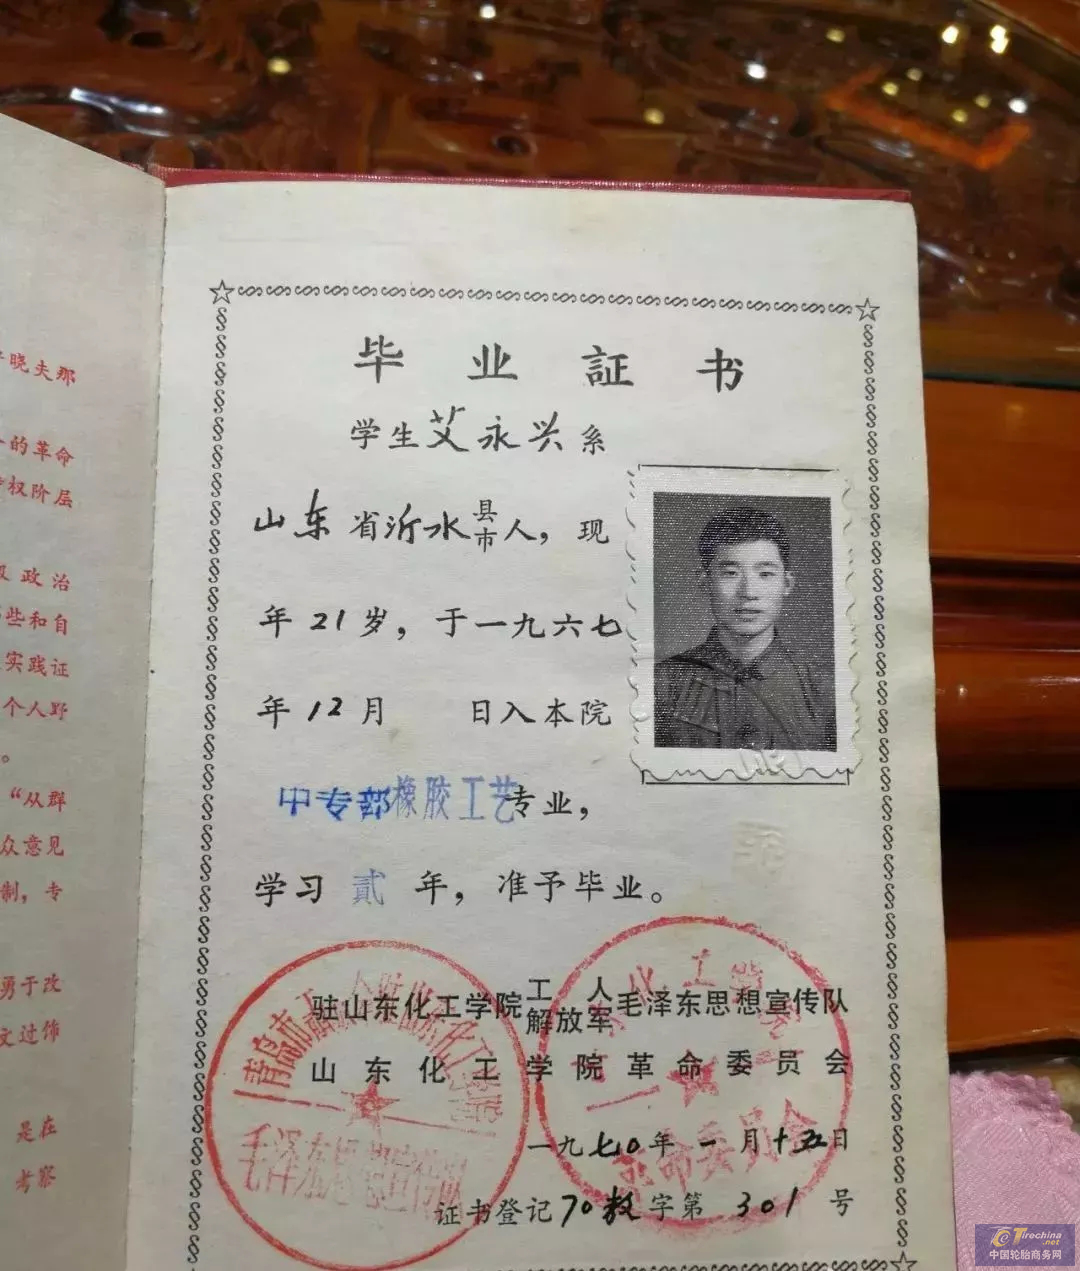 晓夫那
的革命
权阶层
政治
些和自
实践证
个人野
。
“从群
众意见
制，专
勇于改
文过饰
是在
考察
毕业証书
学生艾永兴系
山东省沂水县市人，现
年21岁，于一九六七
年12月 日入本院
中专部橡胶工艺专业，
学习 貳 年，准予毕业。
驻山东化工学院工人解放军毛泽东思想宣传队
山东化工学院革命委员会
一九七〇年一月十五日
证书登记70教字第301号
毛泽东思想宣传队
革命委员会
Tirechina.net
中国轮胎商务网